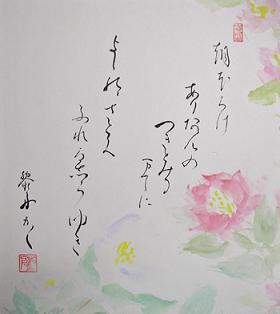 朝ほらけ
ありあけの
つきとみる
万てに
よしのゝさとに
ふれるしらゆき